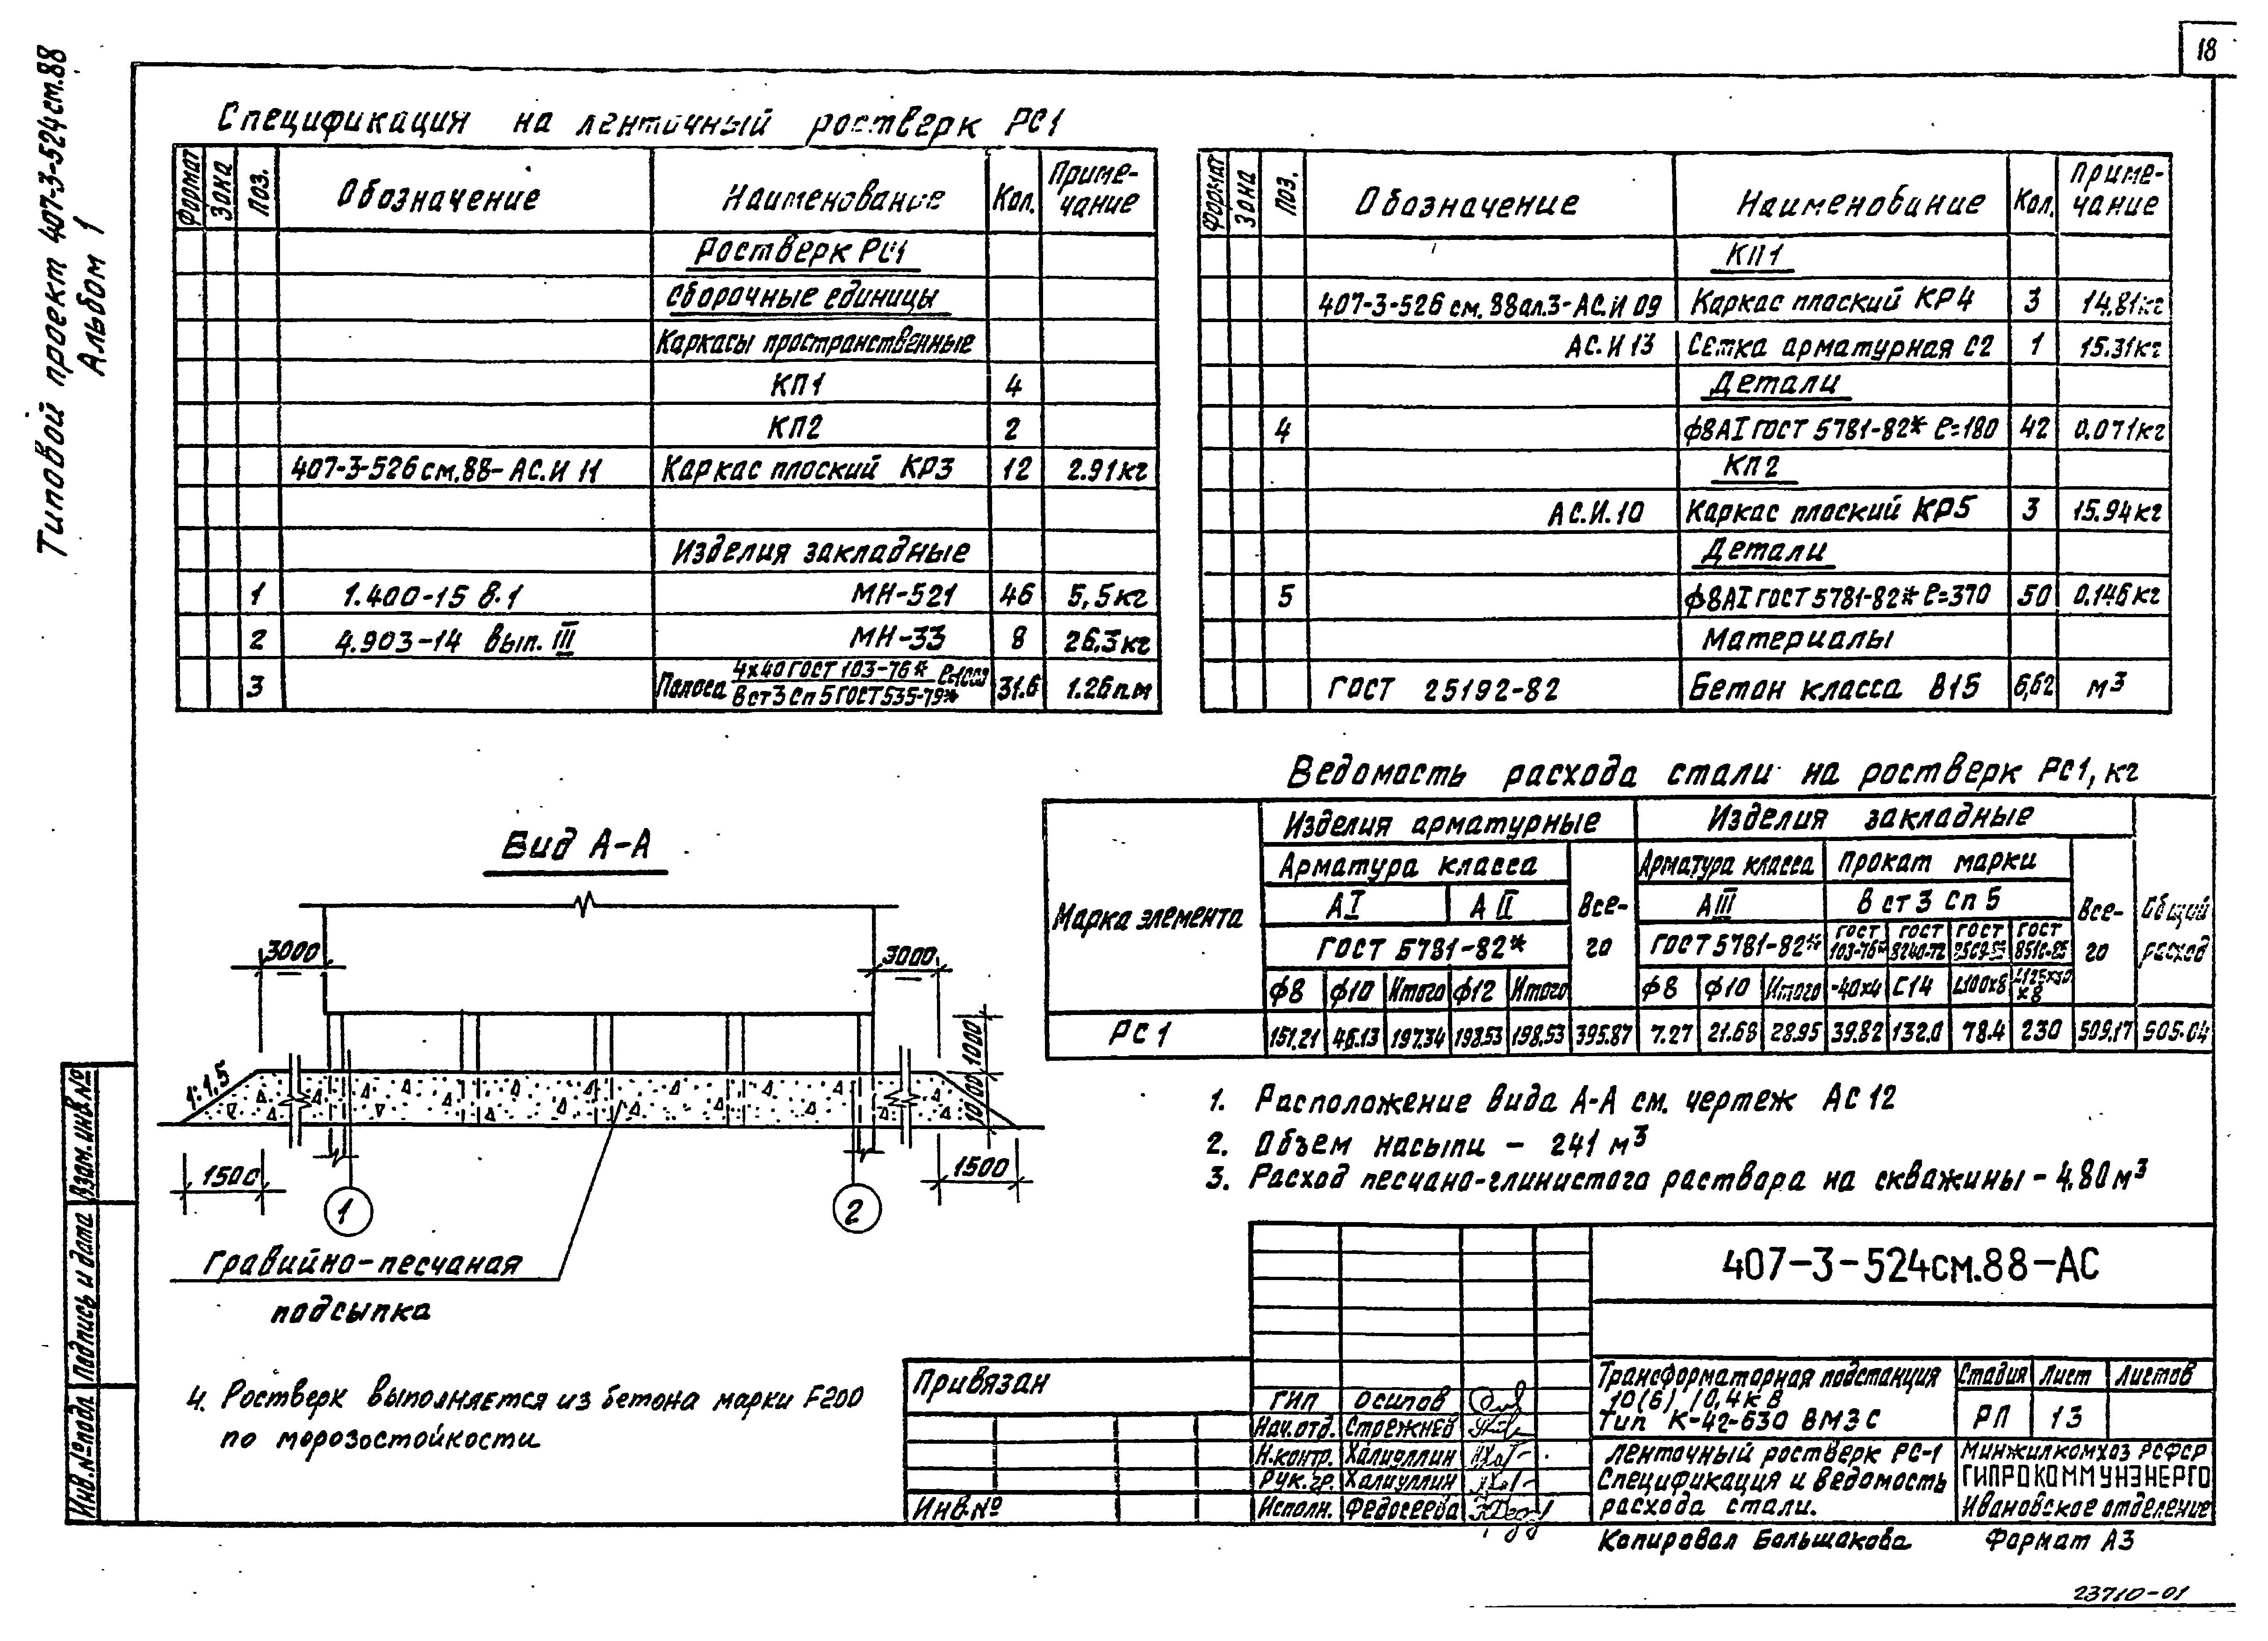 18
Типовой проект 407-3-524см.88
Альбом 1
Спецификация на ленточный ростверк РС1
Формат Зона Поз. Обозначение Наименование Кол. Приме-
чание
Ростверк РС1
Сборочные единицы
Каркасы пространственные
КП1 4
КП2 2
407-3-526см.88-АС.И 11 Каркас плоский КР3 12 2.91кг
Изделия закладные
1 1.400-15 В.1 МН-521 46 5,5кг
2 4.903-14 вып. III МН-33 8 26.3кг
3 Полоса 4х40 ГОСТ 103-76* ℓ=1000 31.6 1.26п.м
В ст3 сп5 ГОСТ 535-79*
Формат Зона Поз. Обозначение Наименование Кол. Приме-
чание
КП1
407-3-526 см.88ал.3-АС.И 09 Каркас плоский КР4 3 14.81кг
АС.И 13 Сетка арматурная С2 1 15.31кг
Детали
4 ф8АI ГОСТ 5781-82* ℓ=180 42 0.071кг
КП2
АС.И.10 Каркас плоский КР5 3 15.94кг
Детали
5 ф8АI ГОСТ 5781-82* ℓ=370 50 0.146кг
Материалы
ГОСТ 25192-82 Бетон класса В15 6,62 м3
Ведомость расхода стали на ростверк РС1, кг
Марка элемента Изделия арматурные Изделия закладные Общий
расход
Арматура класса Все-
го Арматура класса Прокат марки Все-
го
АI АII АIII В ст 3 сп 5
ГОСТ 5781-82* ГОСТ 5781-82* ГОСТ
103-76* ГОСТ
8240-72 ГОСТ ГОСТ
ф8 ф10 Итого ф12 Итого ф8 ф10 Итого -40х4 С14 L100х8 L125х80
х8
РС1 151.21 46.13 197.34 198.53 198.53 395.87 7.27 21.68 28.95 39.82 132.0 78.4 230 509.17 905.04
Вид А-А
3000 3000
1000
1:1.5
1000
1500 1500
1 2
Гравийно-песчаная
подсыпка
1. Расположение вида А-А см. чертеж АС 12
2. Объем насыпи - 241 м3
3. Расход песчано-глинистого раствора на скважины - 4.80м3
4. Ростверк выполняется из бетона марки F200
по морозостойкости
Взам.инв.№
Подпись и дата
Инв.№подл
407-3-524см.88-АС
Привязан
Инв.№
ГИП Осипов
Нач.отд. Стрежнев
Н.контр. Халиуллин
Рук.гр. Халиуллин
Исполн. Федосеева
Трансформаторная подстанция
10(6)/0,4кВ
Тип К-42-630 ВМ3С
Стадия Лист Листов
РП 13
Ленточный ростверк РС-1
Спецификация и ведомость
расхода стали.
Минжилкомхоз РСФСР
ГИПРОКОММУНЭНЕРГО
Ивановское отделение
Копировал Большакова Формат А3
23710-01